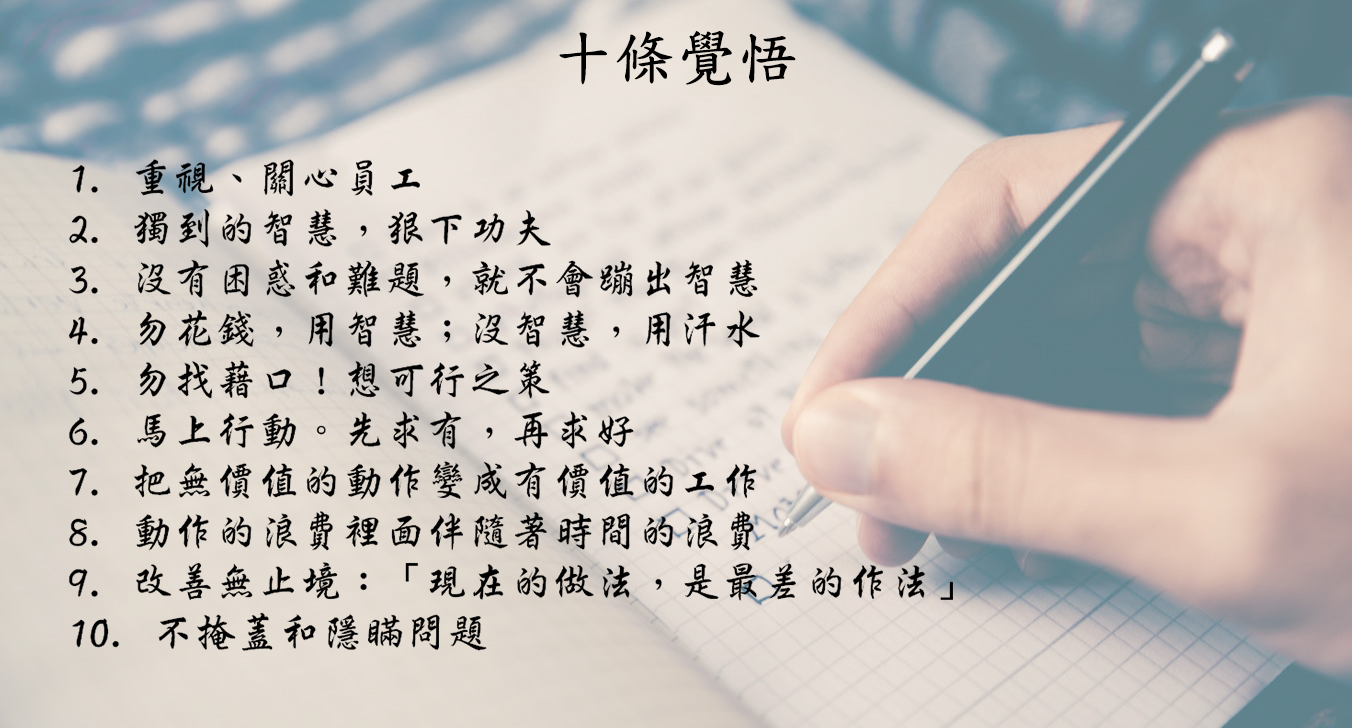 十條覺悟
1. 重視、關心員工
2. 獨到的智慧，狠下功夫
3. 沒有困惑和難題，就不會蹦出智慧
4. 勿花錢，用智慧；沒智慧，用汗水
5. 勿找藉口！想可行之策
6. 馬上行動。先求有，再求好
7. 把無價值的動作變成有價值的工作
8. 動作的浪費裡面伴隨著時間的浪費
9. 改善無止境：「現在的做法，是最差的作法」
10. 不掩蓋和隱瞞問題